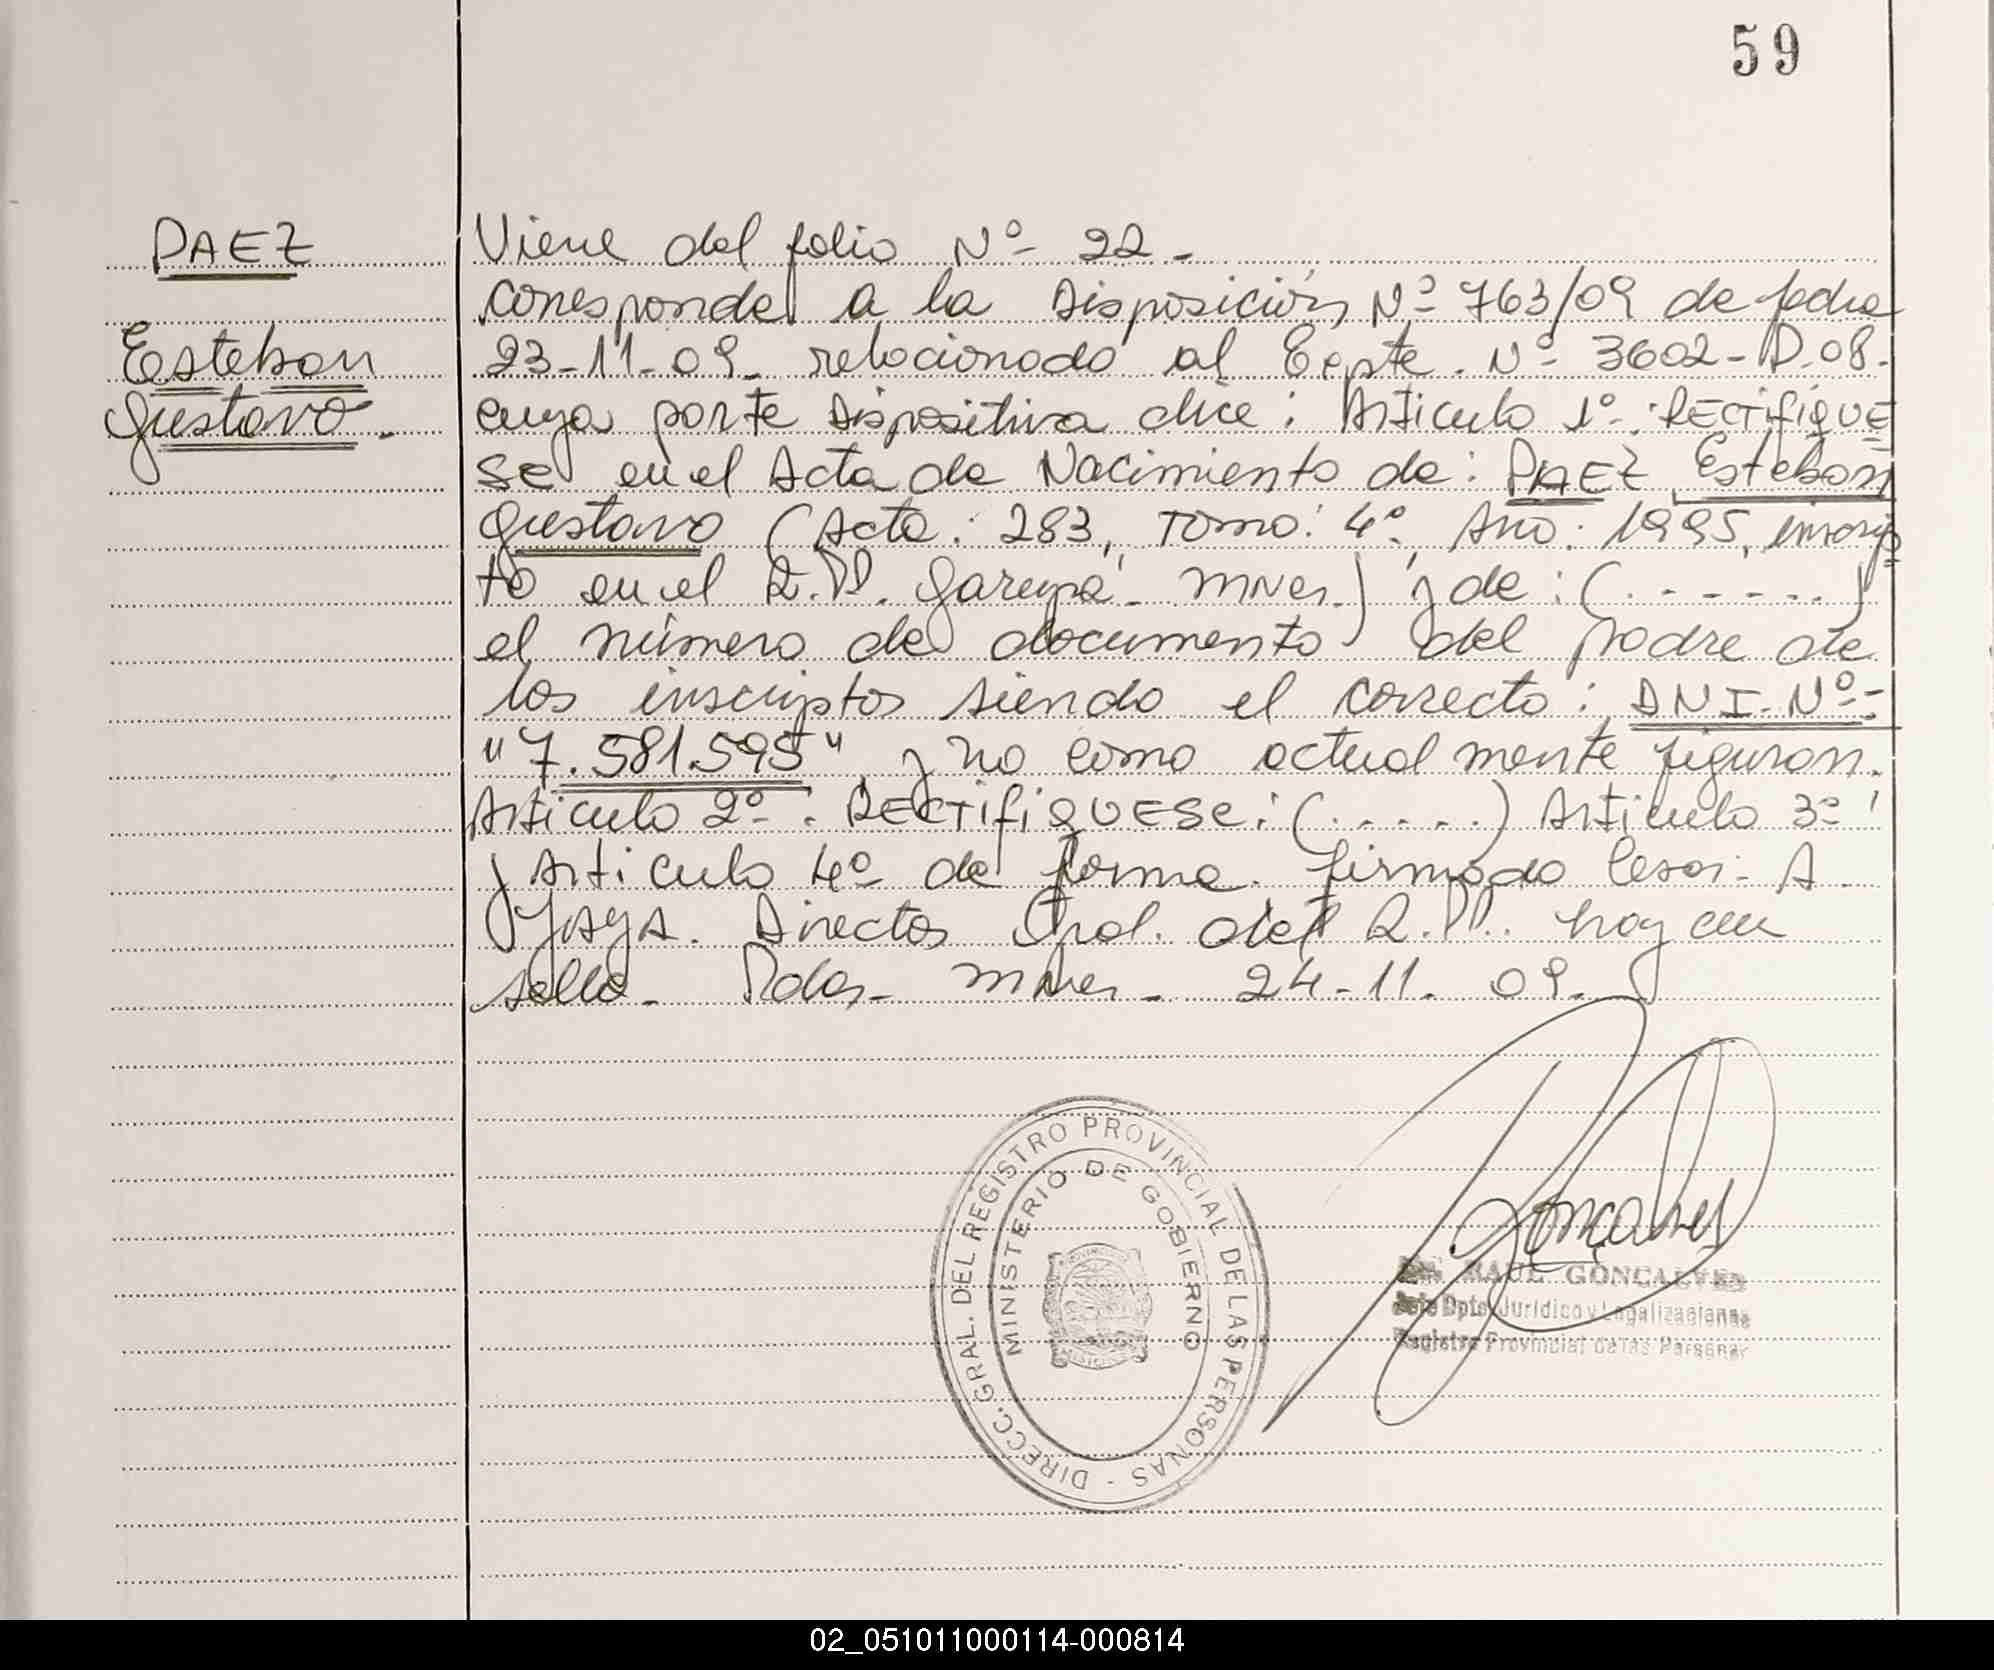 59
PAEZ
Esteban
Gustavo.
Viene del folio Nº 22.
Corresponde a la Disposición Nº 763/09 de fecha
23-11-09 relacionado al Expte. Nº 3602-D.08.
cuya parte dispositiva dice: Artículo 1º: RECTIFIQUE
SE en el Acta de Nacimiento de: PAEZ Esteban
Gustavo (Acta: 283, Tomo: 4º, Año: 1995, inscrip
to en el R.P.P. Garupá - Mnes.) y de: (......)
el número de documento del padre de
los inscriptos siendo el correcto: DNI. Nº-
"7.581.595", y no como actualmente figuran.
Artículo 2º: RECTIFIQUESE: (.....) Artículo 3º
y Artículo 4º de forma. firmado Cesar A.
YAYA. Director Gral. del R.P.P.. hay un
sello. Pdas. Mnes. 24-11-09.
DIRECC. GRAL. DEL REGISTRO PROVINCIAL DE LAS PERSONAS -
MINISTERIO DE GOBIERNO
MISIONES
Goncalves
Dr. RAUL GONCALVES
Jefe Dpto. Jurídico y Legalizaciones
Registro Provincial de las Personas
02_051011000114-000814